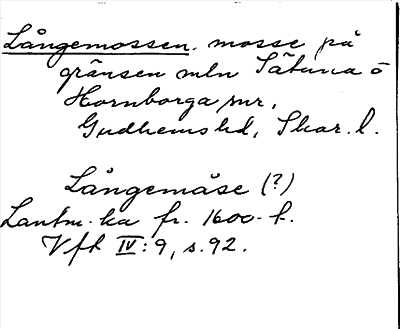 Långemossen. mosse på
gränsen mln Sätuna o
Hornborga snr,
Gudhems hd, Skar. l.
Långemåse (?)
Lantm. ka fr. 1600-t.
Vfh IV:9, s.92.